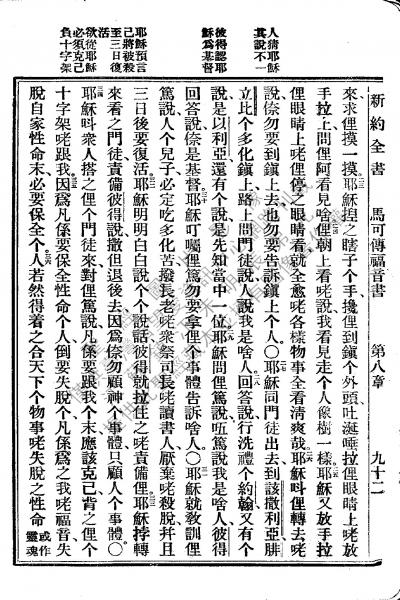 新約全書 馬可傳福音書 第八章 九十二
人猜耶穌
其說不一
彼得認耶
穌爲基督
耶穌預言
己將被殺
至三日復
欲從耶穌
必須克己
負十字架
來求俚摸一摸、耶穌揑之瞎子个手攙俚到鎭个外頭吐涎唾拉俚眼睛上咾放
手拉上問俚阿看見啥俚朝上看咾說我看見走个人像樹一樣耶穌又放手拉
俚眼睛上咾俚停之眼睛看就全愈咾各樣物事全看清爽哉耶穌呌俚轉去咾
說倷勿要到鎭上去也勿要告訴鎭上个人〇耶穌同門徒出去到該撒利亞腓
立比个多化鎭上路上問門徒說人說我是啥人回答說行洗禮个約翰又有个
說是以利亞還有个說是先知當中一位耶穌問俚篤說㕶篤說我是啥人彼得
回答說倷是基督耶穌叮囑俚篤勿要拿俚个事體告訴啥人〇耶穌就敎訓俚
篤說人个兒子必定吃多化苦撥長老咾衆祭司長咾讀書人厭棄咾殺脫幷且
三日後要復活耶穌明明白白說个个說話彼得就拉住之咾責備俚耶穌捋轉
來看之門徒責備彼得說撒但退後去因爲倷勿顧神个事體只顧人个事體〇
耶穌呌衆人搭之俚个門徒來對俚篤說凡係要跟我个末應該克己肯之俚个
十字架咾跟我因爲凡係要保全性命个人倒要失脫个凡係爲之我咾福音失
脫自家性命末必要保全个人若然得着之合天下个物事咾失脫之性命 或作靈魂